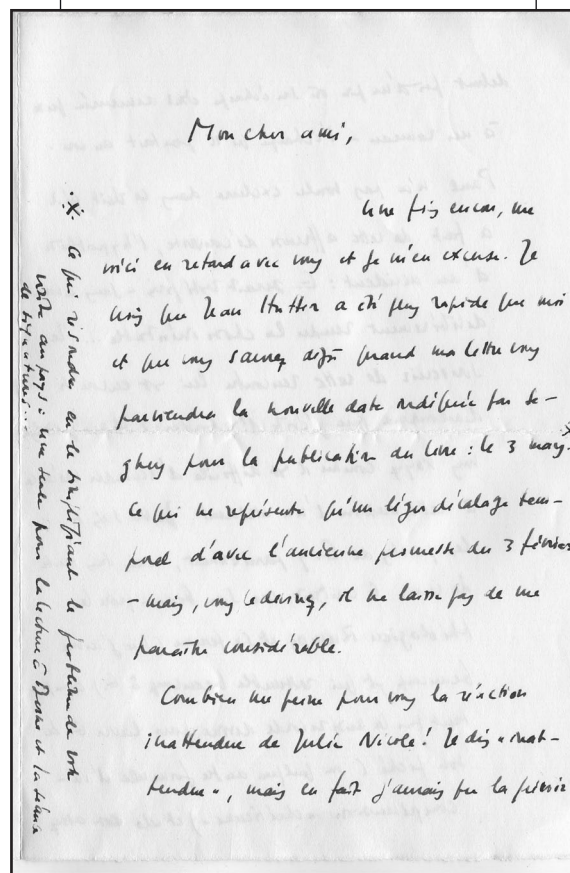 Mon cher ami,
Une fois encore, me
voici en retard avec vous et je m'en excuse. Je
crois que Jean Hutter a été plus rapide que moi
et que vous saurez déjà quand ma lettre vous
parviendra la nouvelle date indiquée par Se-
ghers pour la publication du livre : le 3 mars.*
Ce qui ne représente qu'un léger décalage tem-
porel d'avec l'ancienne promesse du 3 février
– mais, vous le devinez, il ne laisse pas de me
paraître considérable.
Combien me peine pour vous la réaction
inattendue de Julie Nicole! Je dis « inat-
tendue », mais en fait j'aurais pu la prévoir
* Ce qui en simplifiant le problème de votre
visite au pays : une seule pour la lecture à et la séance
de signatures...